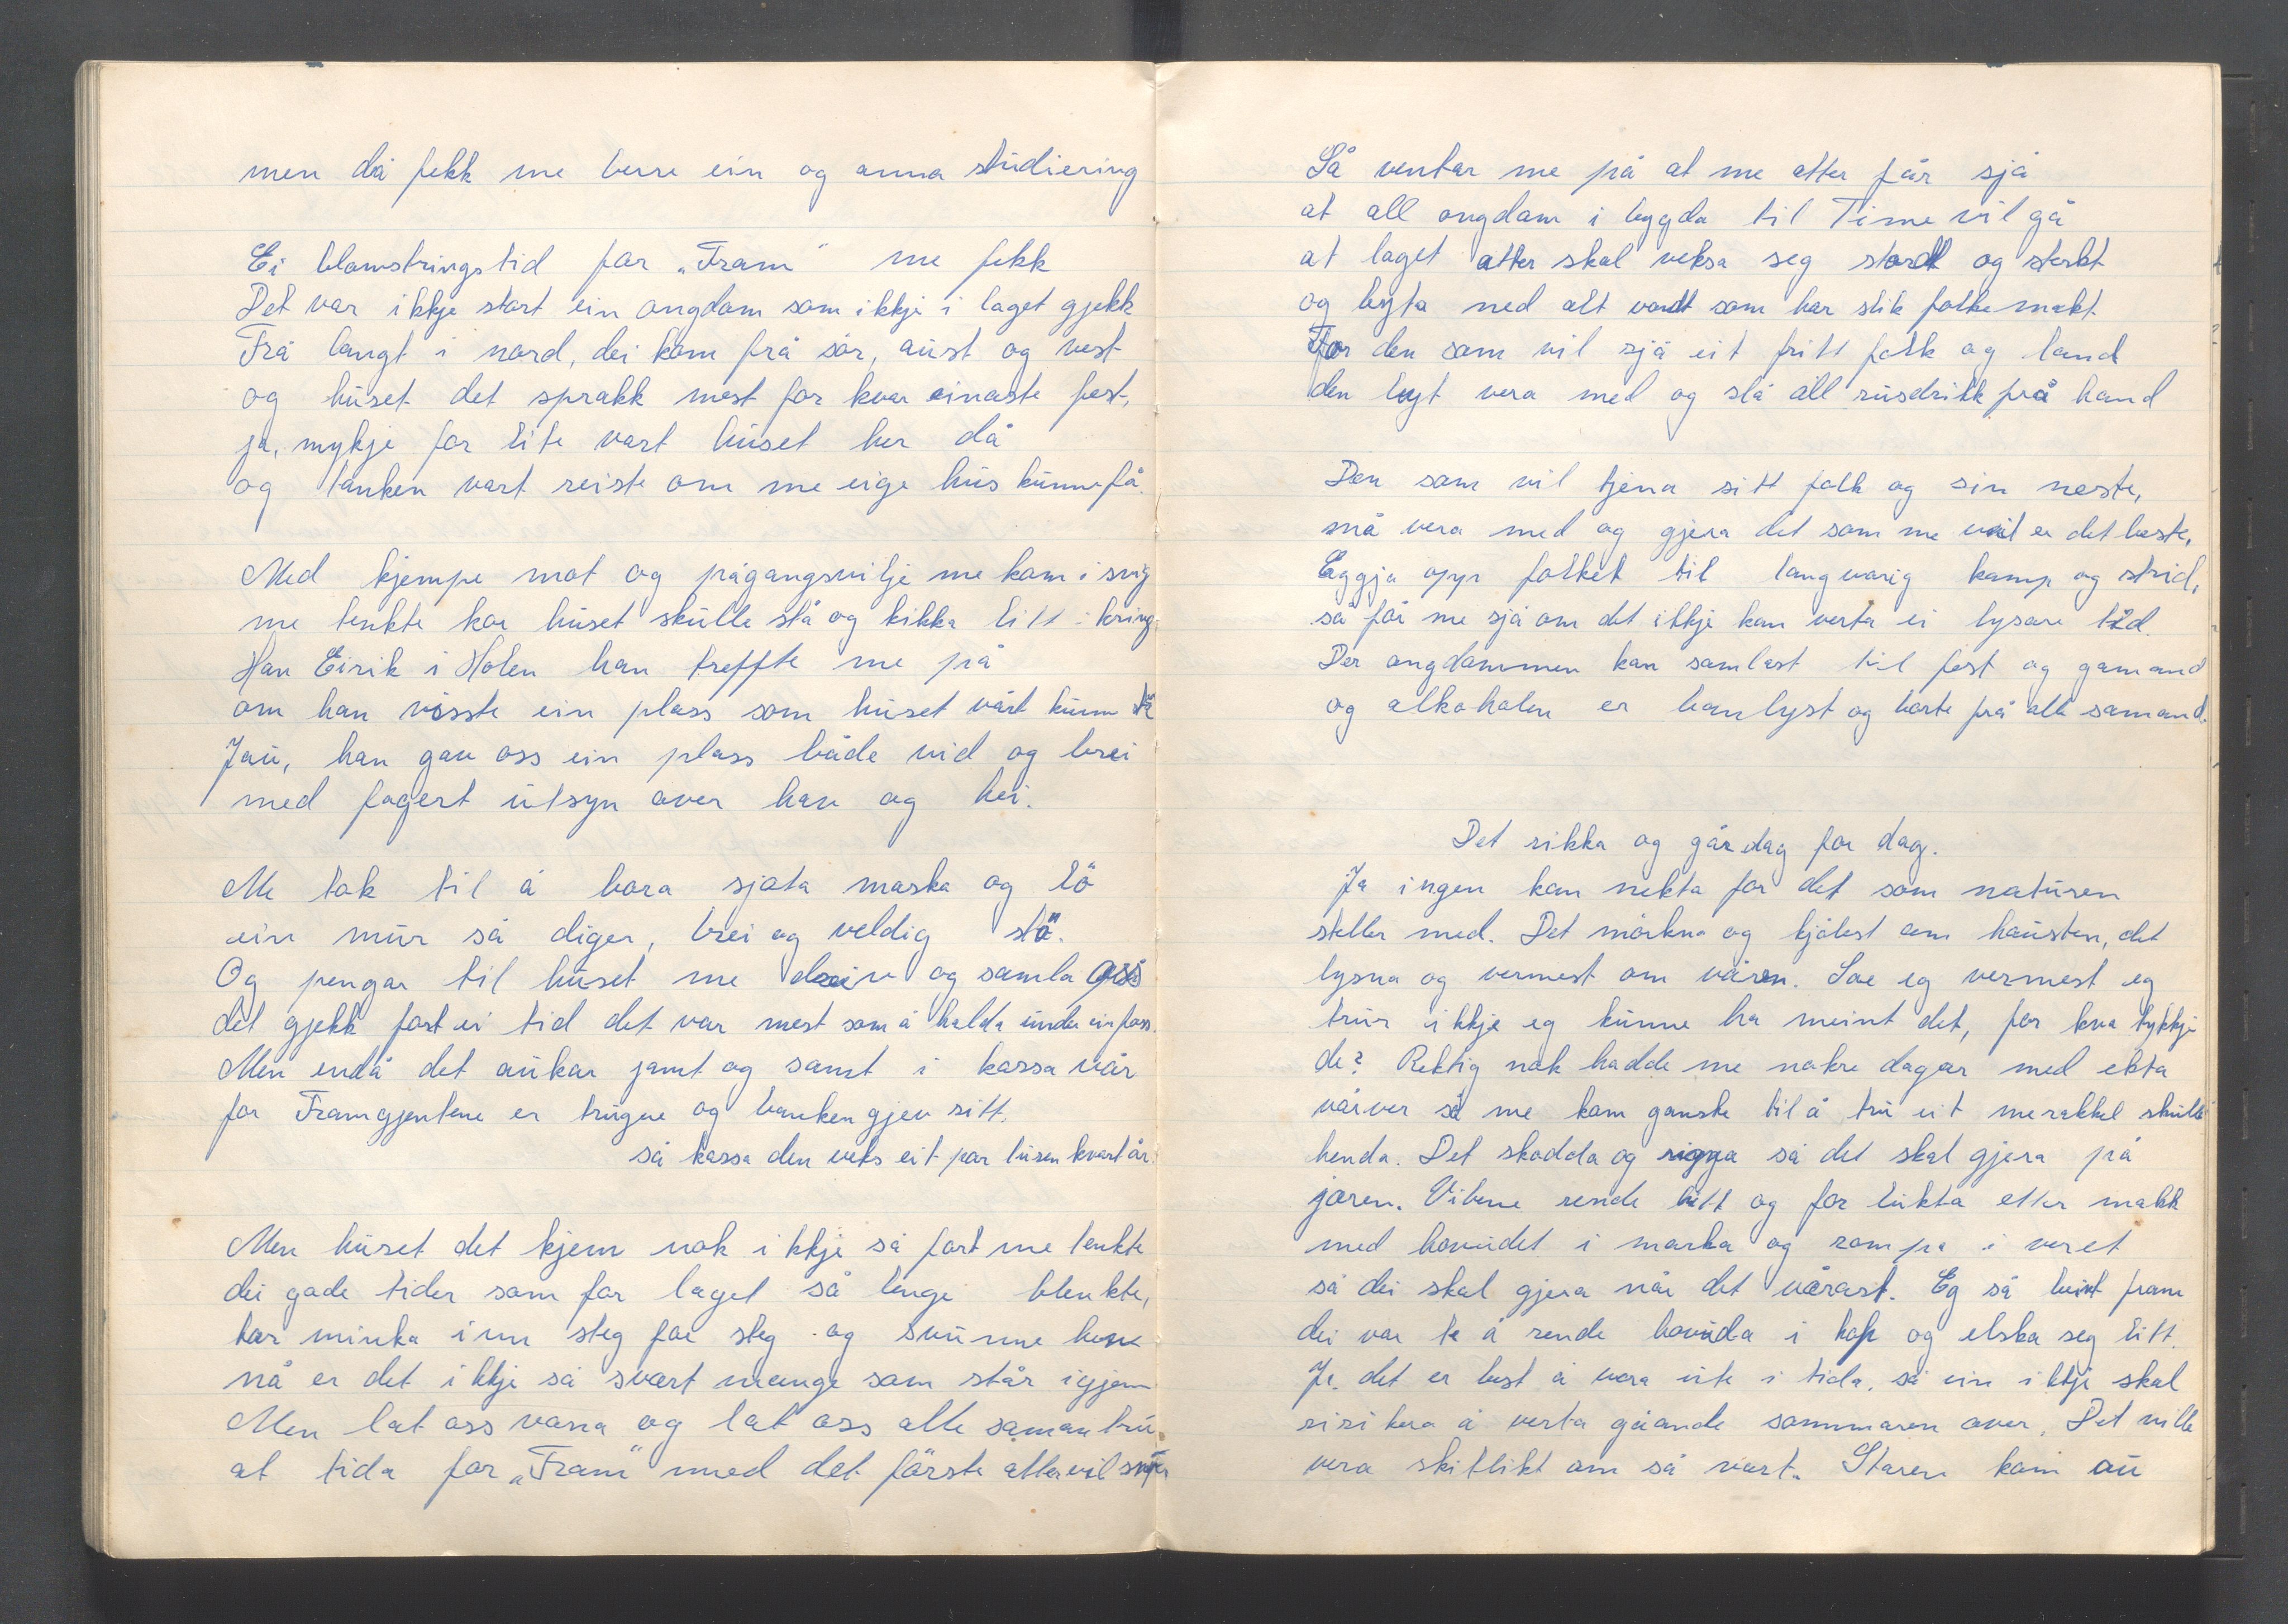 men då fekk me berre ein og anna studiering
Ei blomstringstid for „Fram" me fekk
Det var ikkje stort ein ongdom som ikkje i laget gjekk
Frå langt i nord, dei kom frå sør, aust og vest
og huset det sprakk mest for kvar einaste fest,
ja, mykje for lite vart huset her då
og tanken vart reiste om me eige hus kunne få.
Med kjempe mot og pågangsvilje me kom i svig
me tenkte kor huset skulle stå og kikka litt i kring.
Han Eirik i Holen han treffte me på
om han visste ein plass som huset vårt kunne stå
Jau, han gav oss ein plass både vid og brei
med fagert utsyn over hav og hei.
Me tok til å bora sjota maska og lö
ein mur så diger, brei og veldig stö.
Og pengar til huset me dreiv og samla oss
det gjekk fort ei tid det var mest som å halda under ein foss.
Men endå det aukar jamt og samt i kassa vår
for Framgjentene er trugne og banken gjev sitt.
så kassa den veks eit par tusen kvart år.
Men huset det kjem nok ikkje så fort me tenkte
dei gode tider som for laget så lenge blenkte,
har minka inn steg for steg og svunne henn
nå er det ikkje så svært mange som står igjenn
Men lat oss vona og lat oss alle saman tru
at tida for „Fram" med det förste atter vil snu
Så ventar me på at me atter får sjå
at all ongdom i bygda til Time vil gå
at laget atter skal veksa seg stordt og sterkt
og bryta ned alt vondt som har slik folkemakt
For den som vil sjå eit fritt folk og land
den lyt vera med og slå all rusdrikk frå hand
Den som vil tjena sitt folk og sin neste,
må vera med og gjera det som me veit er det beste,
Eggja opp folket til langvarig kamp og strid,
så får me sjå om det ikkje kan verta ei lysare tid.
Der ongdommen kan samlast til fest og gamand
og alkoholen er banlyst og borte frå alle samand.
Det rikka og går dag for dag.
Ja ingen kan nekta for det som naturen
steller med. Det mörkna og kjölest om hausten, det
lysna og vermest om våren. Sae eg vermest eg
trur ikkje eg kunne ha meint det, for kva tykkje
de? Rektig nok hadde me nokre dagar med ekta
vårver så me kom ganske til å tru eit merakkel skulle
henda. Det skodda og rigna så det skal gjera på
jæren. Vibene rende litt og for lukta etter makk
med hovudet i marka og rompa i veret
så dei skal gjera når det vårast. Eg så beint fram
dei var te å rende hovuda i hop og elska seg litt.
Ja, det er best å vera ute i tida, så ein ikkje skal
risikera å verta gåande sommaren over. Det ville
vera skitlikt om så vart. Staren kom au